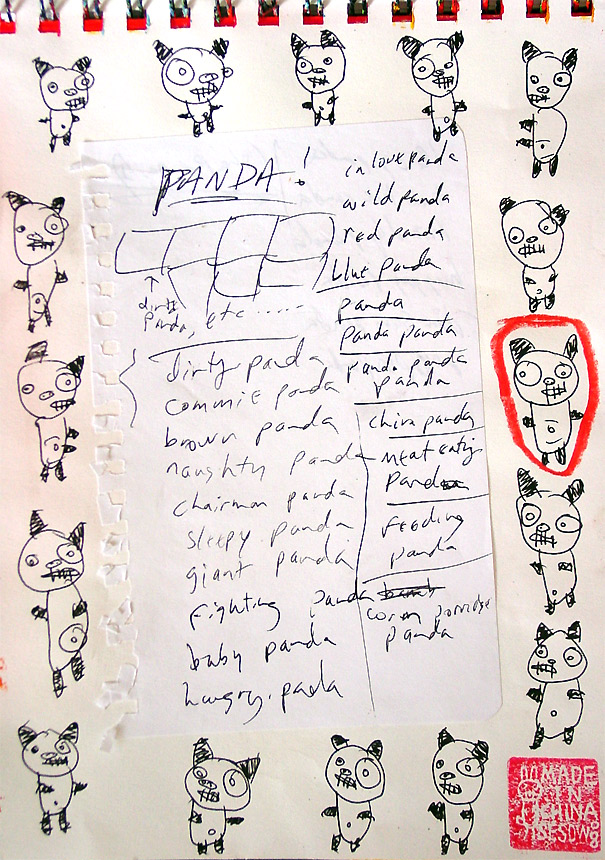 PANDA!
dirty
Panda, etc.....
dirty panda
commie panda
brown panda
naughty panda
chairman panda
sleepy panda
giant panda
fighting panda
baby panda
hungry panda
in love panda
wild panda
red panda
blue panda
panda
panda panda
panda panda
panda
china panda
meat eating
panda
feeding
panda
corn porridge
panda
MADE
IN
CHINA